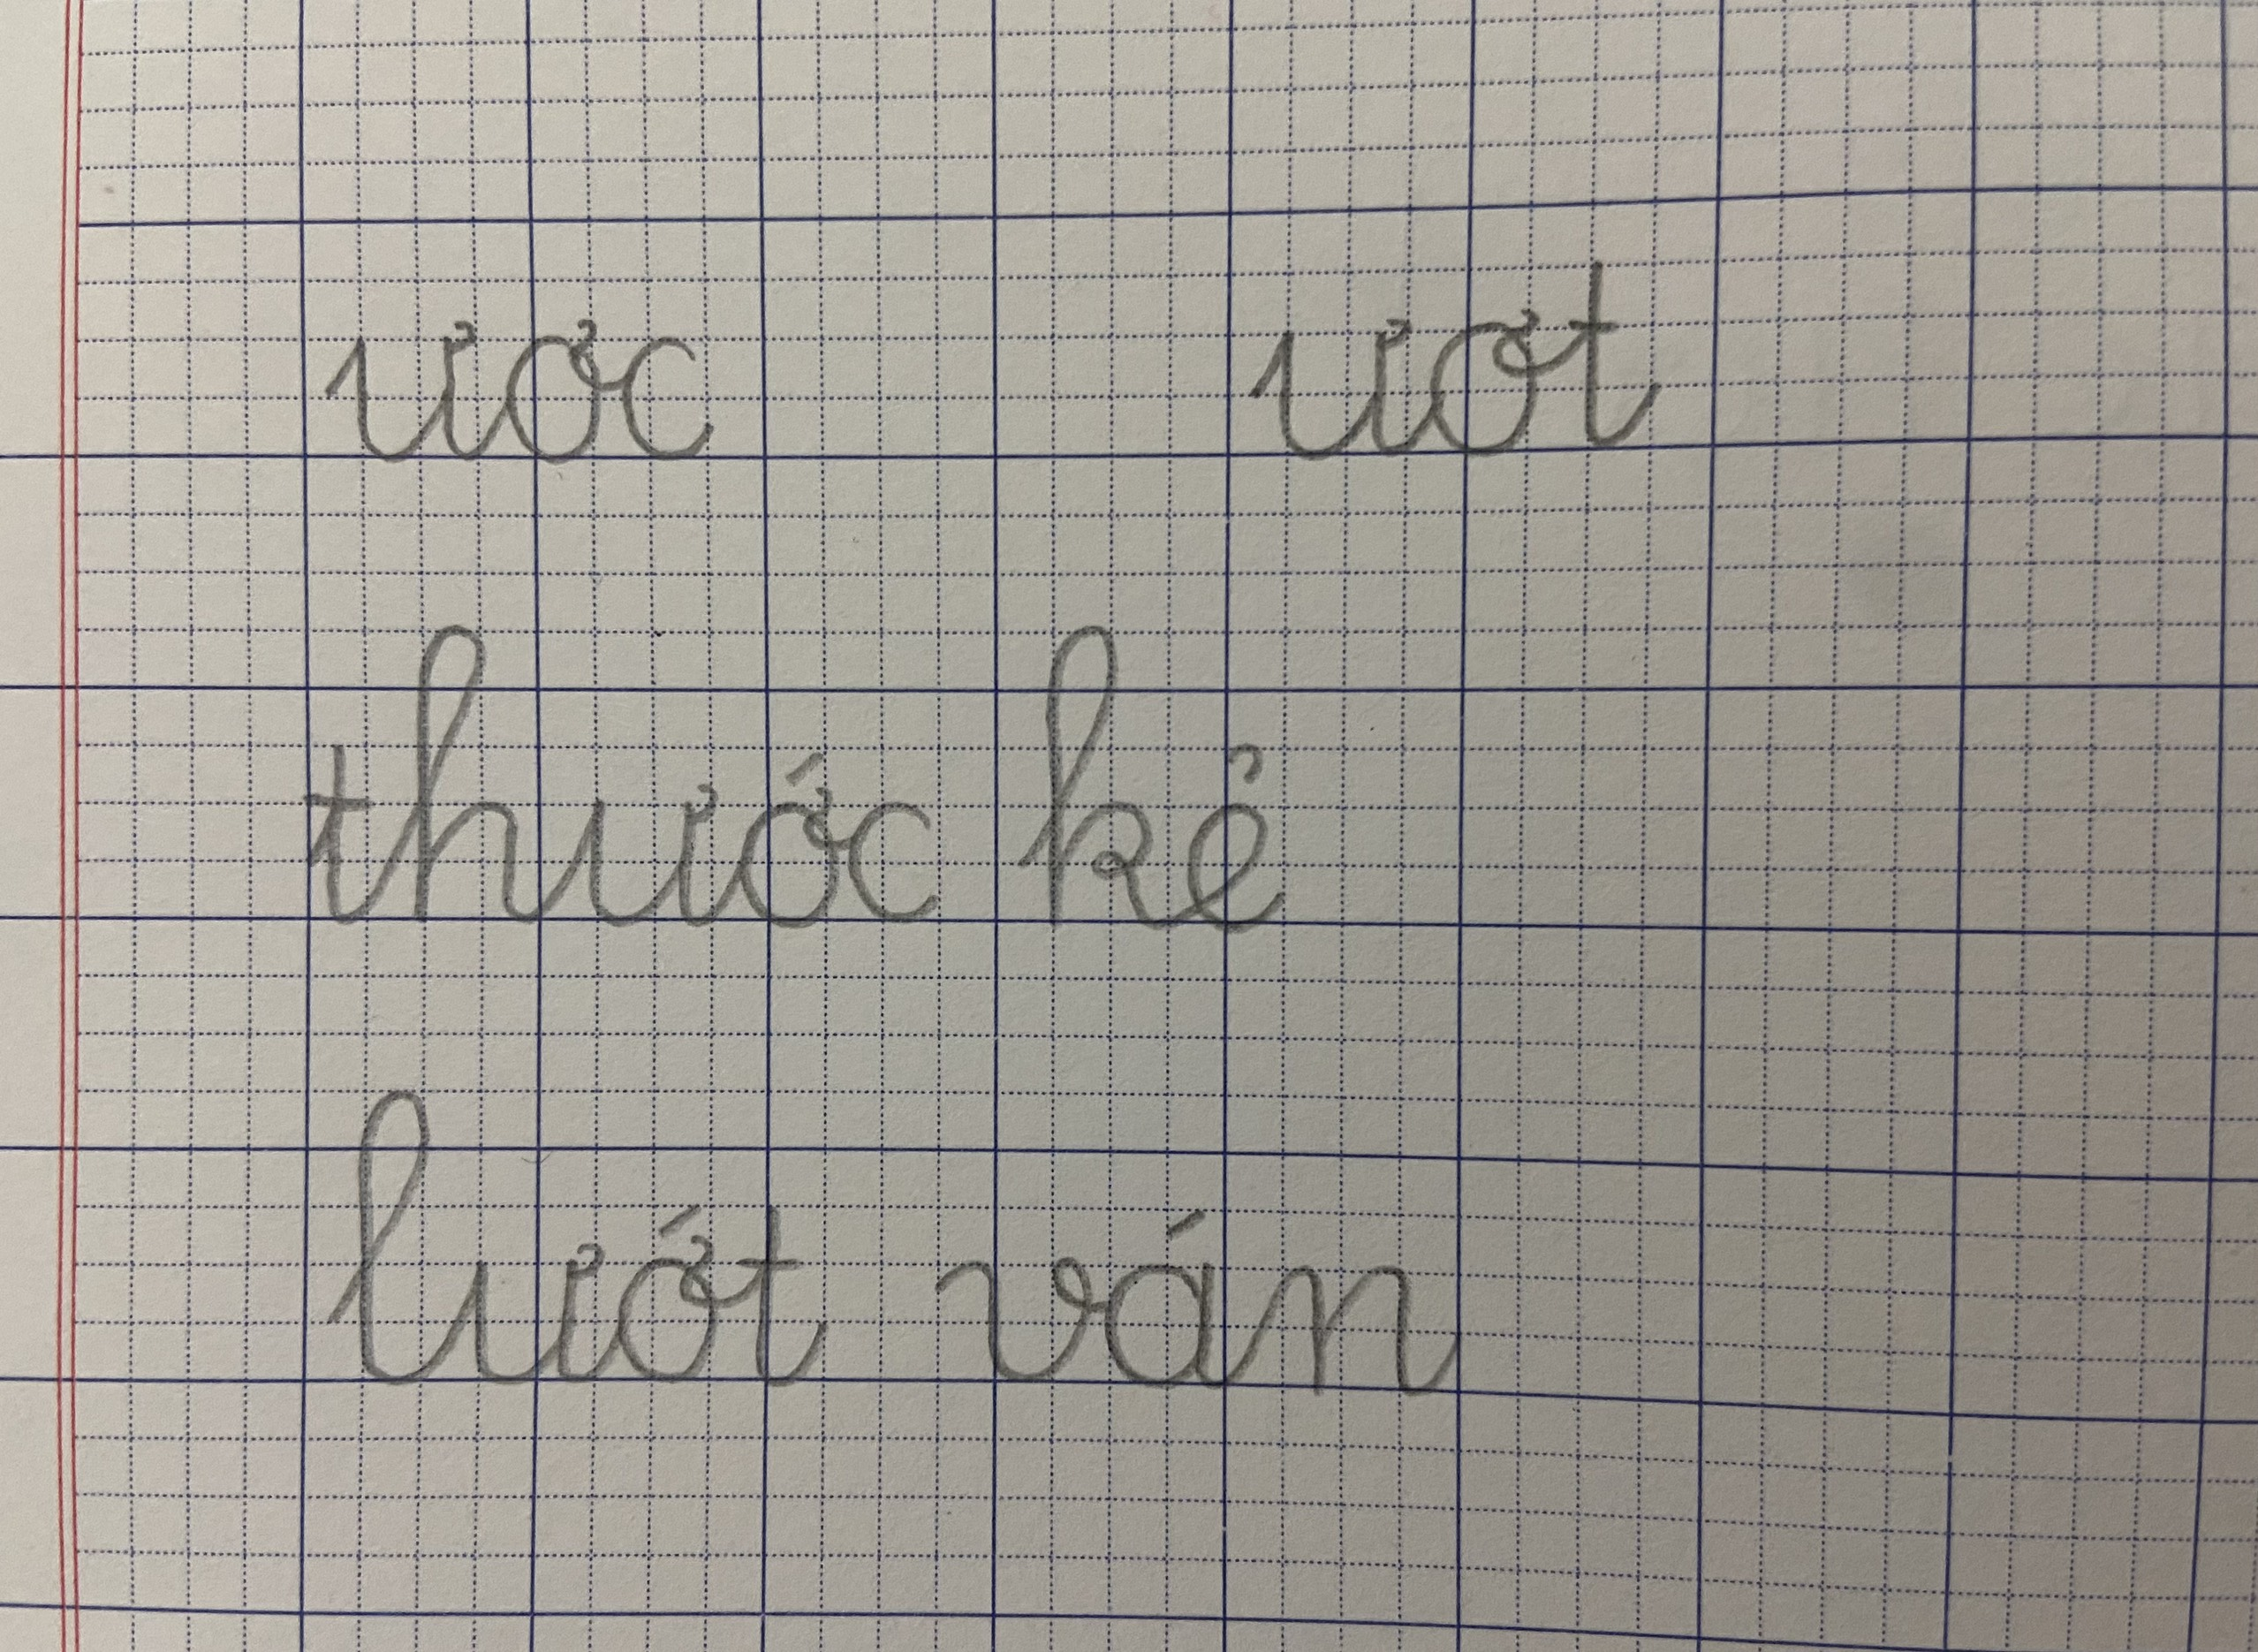 ươc ươt
thước kẻ
lướt ván